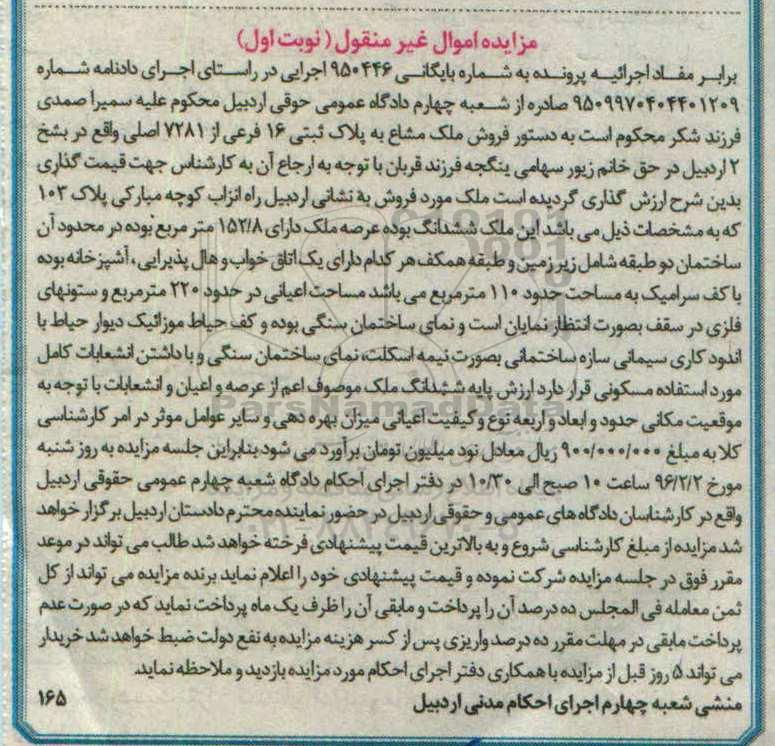 مزایده اموال غیر منقول (نوبت اول)
برابر مفاد اجرائیه پرونده به شماره بایگانی ۹۵۰۴۴۶ اجرایی در راستای اجرای دادنامه شماره
۹۵۰۹۹۷۰۴۰۴۴۰۱۲۰۹ صادره از شعبه چهارم دادگاه عمومی حوقی اردبیل محکوم علیه سمیرا صمدی
فرزند شکر محکوم است به دستور فروش ملک مشاع به پلاک ثبتی ۱۶ فرعی از ۷۲۸۱ اصلی واقع در بشخ
۲ اردبیل در حق خانم زیور سهامی ینگجه فرزند قربان با توجه به ارجاع آن به کارشناس جهت قیمت گذاری
بدین شرح ارزش گذاری گردیده است ملک مورد فروش به نشانی اردبیل راه انزاب کوچه مبارکی پلاک ۱۰۳
که به مشخصات ذیل می باشد این ملک ششدانگ بوده عرصه ملک دارای ۱۵۲/۸ متر مربع بوده در محدود آن
ساختمان دو طبقه شامل زیرزمین و طبقه همکف هر کدام دارای یک اتاق خواب و هال پذیرایی، آشپزخانه بوده
با کف سرامیک به مساحت حدود ۱۱۰ مترمربع می باشد مساحت اعیانی در حدود ۲۲۰ مترمربع و ستونهای
فلزی در سقف بصورت انتظار نمایان است و نمای ساختمان سنگی بوده و کف حیاط موزائیک دیوار حیاط با
اندود کاری سیمانی سازه ساختمانی بصورت نیمه اسکلت، نمای ساختمان سنگی و با داشتن انشعابات کامل
مورد استفاده مسکونی قرار دارد ارزش پایه ششدانگ ملک موصوف اعم از عرصه و اعیان و انشعابات با توجه به
موقعیت مکانی حدود و ابعاد و اربعه نوع و کیفیت اعیانی میزان بهره دهی و سایر عوامل موثر در امر کارشناسی
کلا به مبلغ ۹۰۰/۰۰۰/۰۰۰ ریال معادل نود میلیون تومان برآورد می شود بنابراین جلسه مزایده به روز شنبه
مورخ ۹۶/۲/۲ ساعت ۱۰ صبح الی ۱۰/۳۰ در دفتر اجرای احکام دادگاه شعبه چهارم عمومی حقوقی اردبیل
واقع در کارشناسان دادگاه های عمومی و حقوقی اردبیل در حضور نماینده محترم دادستان اردبیل برگزار خواهد
شد مزایده از مبلغ کارشناسی شروع و به بالاترین قیمت پیشنهادی فرخته خواهد شد طالب می تواند در موعد
مقرر فوق در جلسه مزایده شرکت نموده و قیمت پیشنهادی خود را اعلام نماید برنده مزایده می تواند از کل
ثمن معامله فی المجلس ده درصد آن را پرداخت و مابقی آن را ظرف یک ماه پرداخت نماید که در صورت عدم
پرداخت مابقی در مهلت مقرر ده درصد واریزی پس از کسر هزینه مزایده به نفع دولت ضبط خواهد شد خریدار
می تواند ۵ روز قبل از مزایده با همکاری دفتر اجرای احکام مورد مزایده بازدید و ملاحظه نماید.
منشی شعبه چهارم اجرای احکام مدنی اردبیل
۱۶۵
ParsNamadData